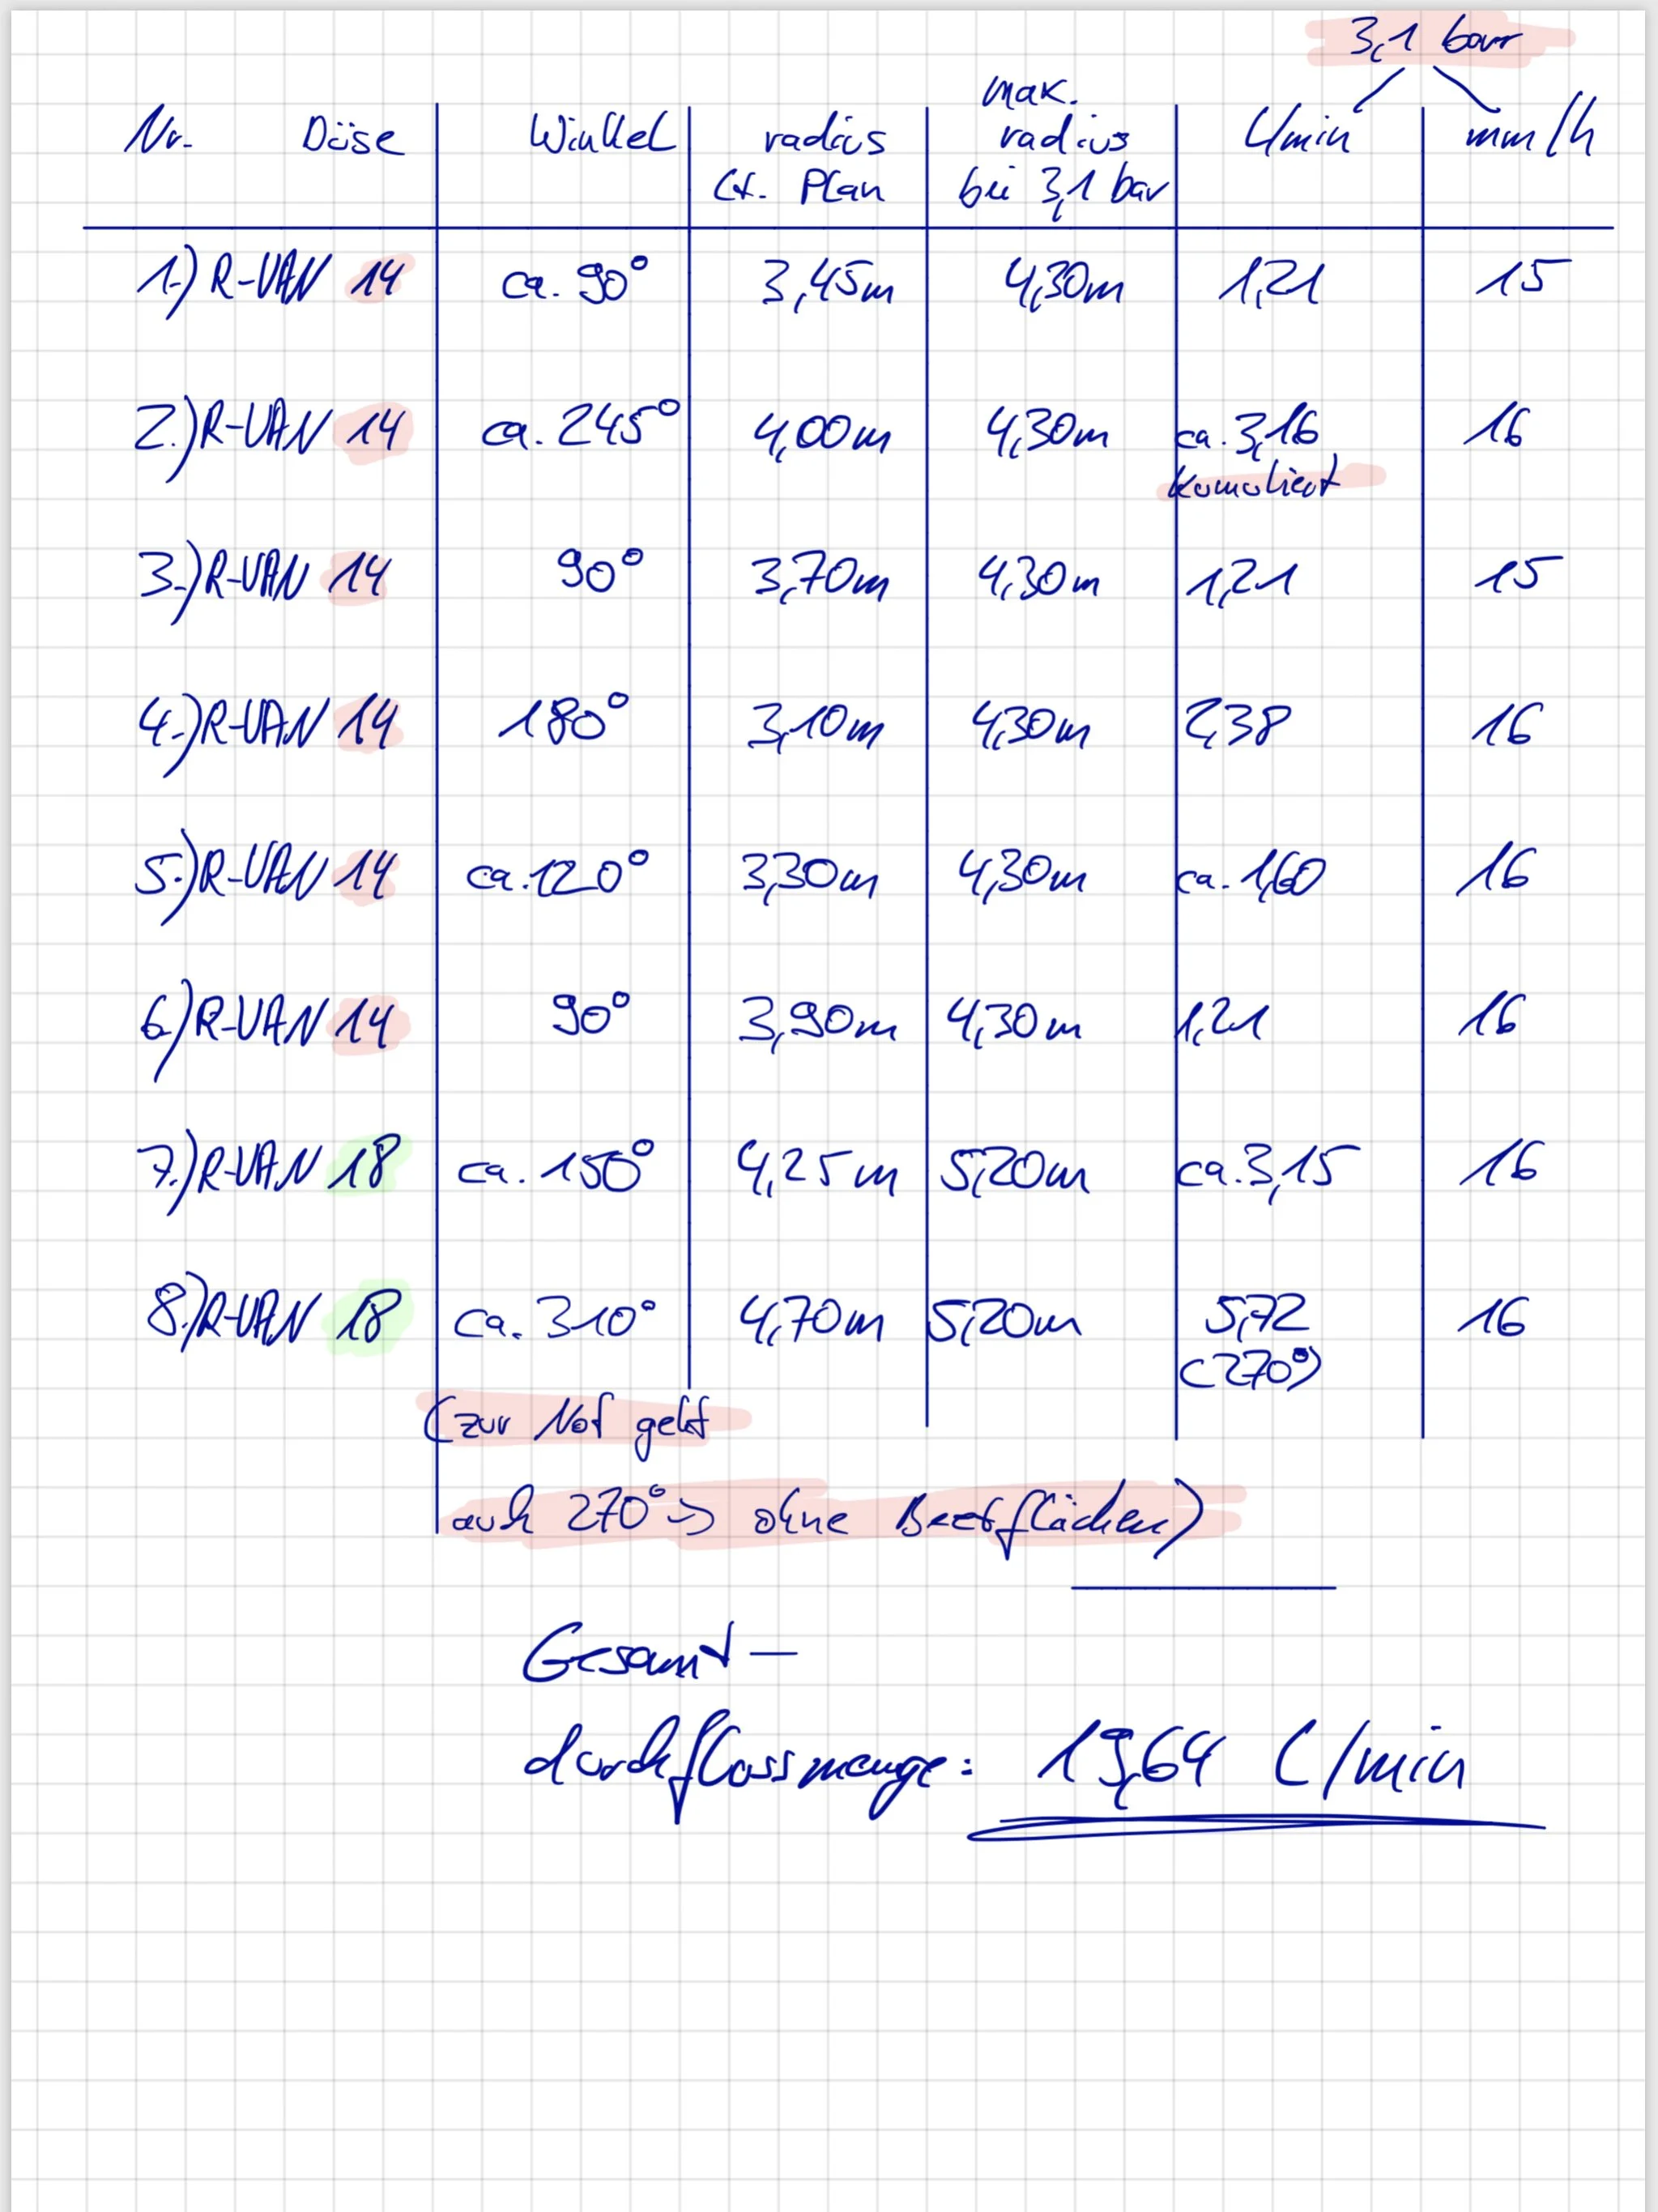 3,1 bar
Nr. Düse Winkel radius lt. Plan max. radius bei 3,1 bar l/min mm/h
1.) R-VAN 14 ca. 90° 3,45m 4,30m 1,21 15
2.) R-VAN 14 ca. 245° 4,00m 4,30m ca. 3,16 16
kumuliert
3.) R-VAN 14 90° 3,70m 4,30m 1,21 15
4.) R-VAN 14 180° 3,10m 4,30m 2,38 16
5.) R-VAN 14 ca. 120° 3,30m 4,30m ca. 1,60 16
6.) R-VAN 14 90° 3,90m 4,30m 1,21 16
7.) R-VAN 18 ca. 150° 4,25m 5,20m ca. 3,15 16
8.) R-VAN 18 ca. 310° 4,70m 5,20m 5,72 16
(270°)
(zur Not geht
auch 270° -> ohne Beetflächen)
Gesamt-
durchflussmenge: 19,64 l/min